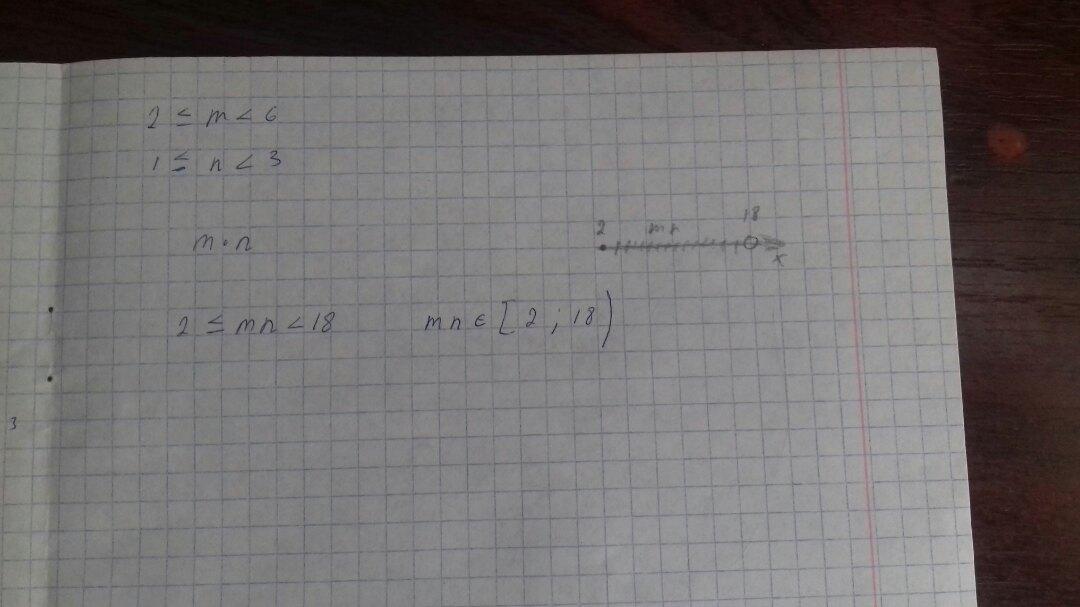 2 ≤ m < 6
1 ≤ n < 3
m · n
2 mn 18
x
2 ≤ mn < 18 mn ∈ [2 ; 18)
3